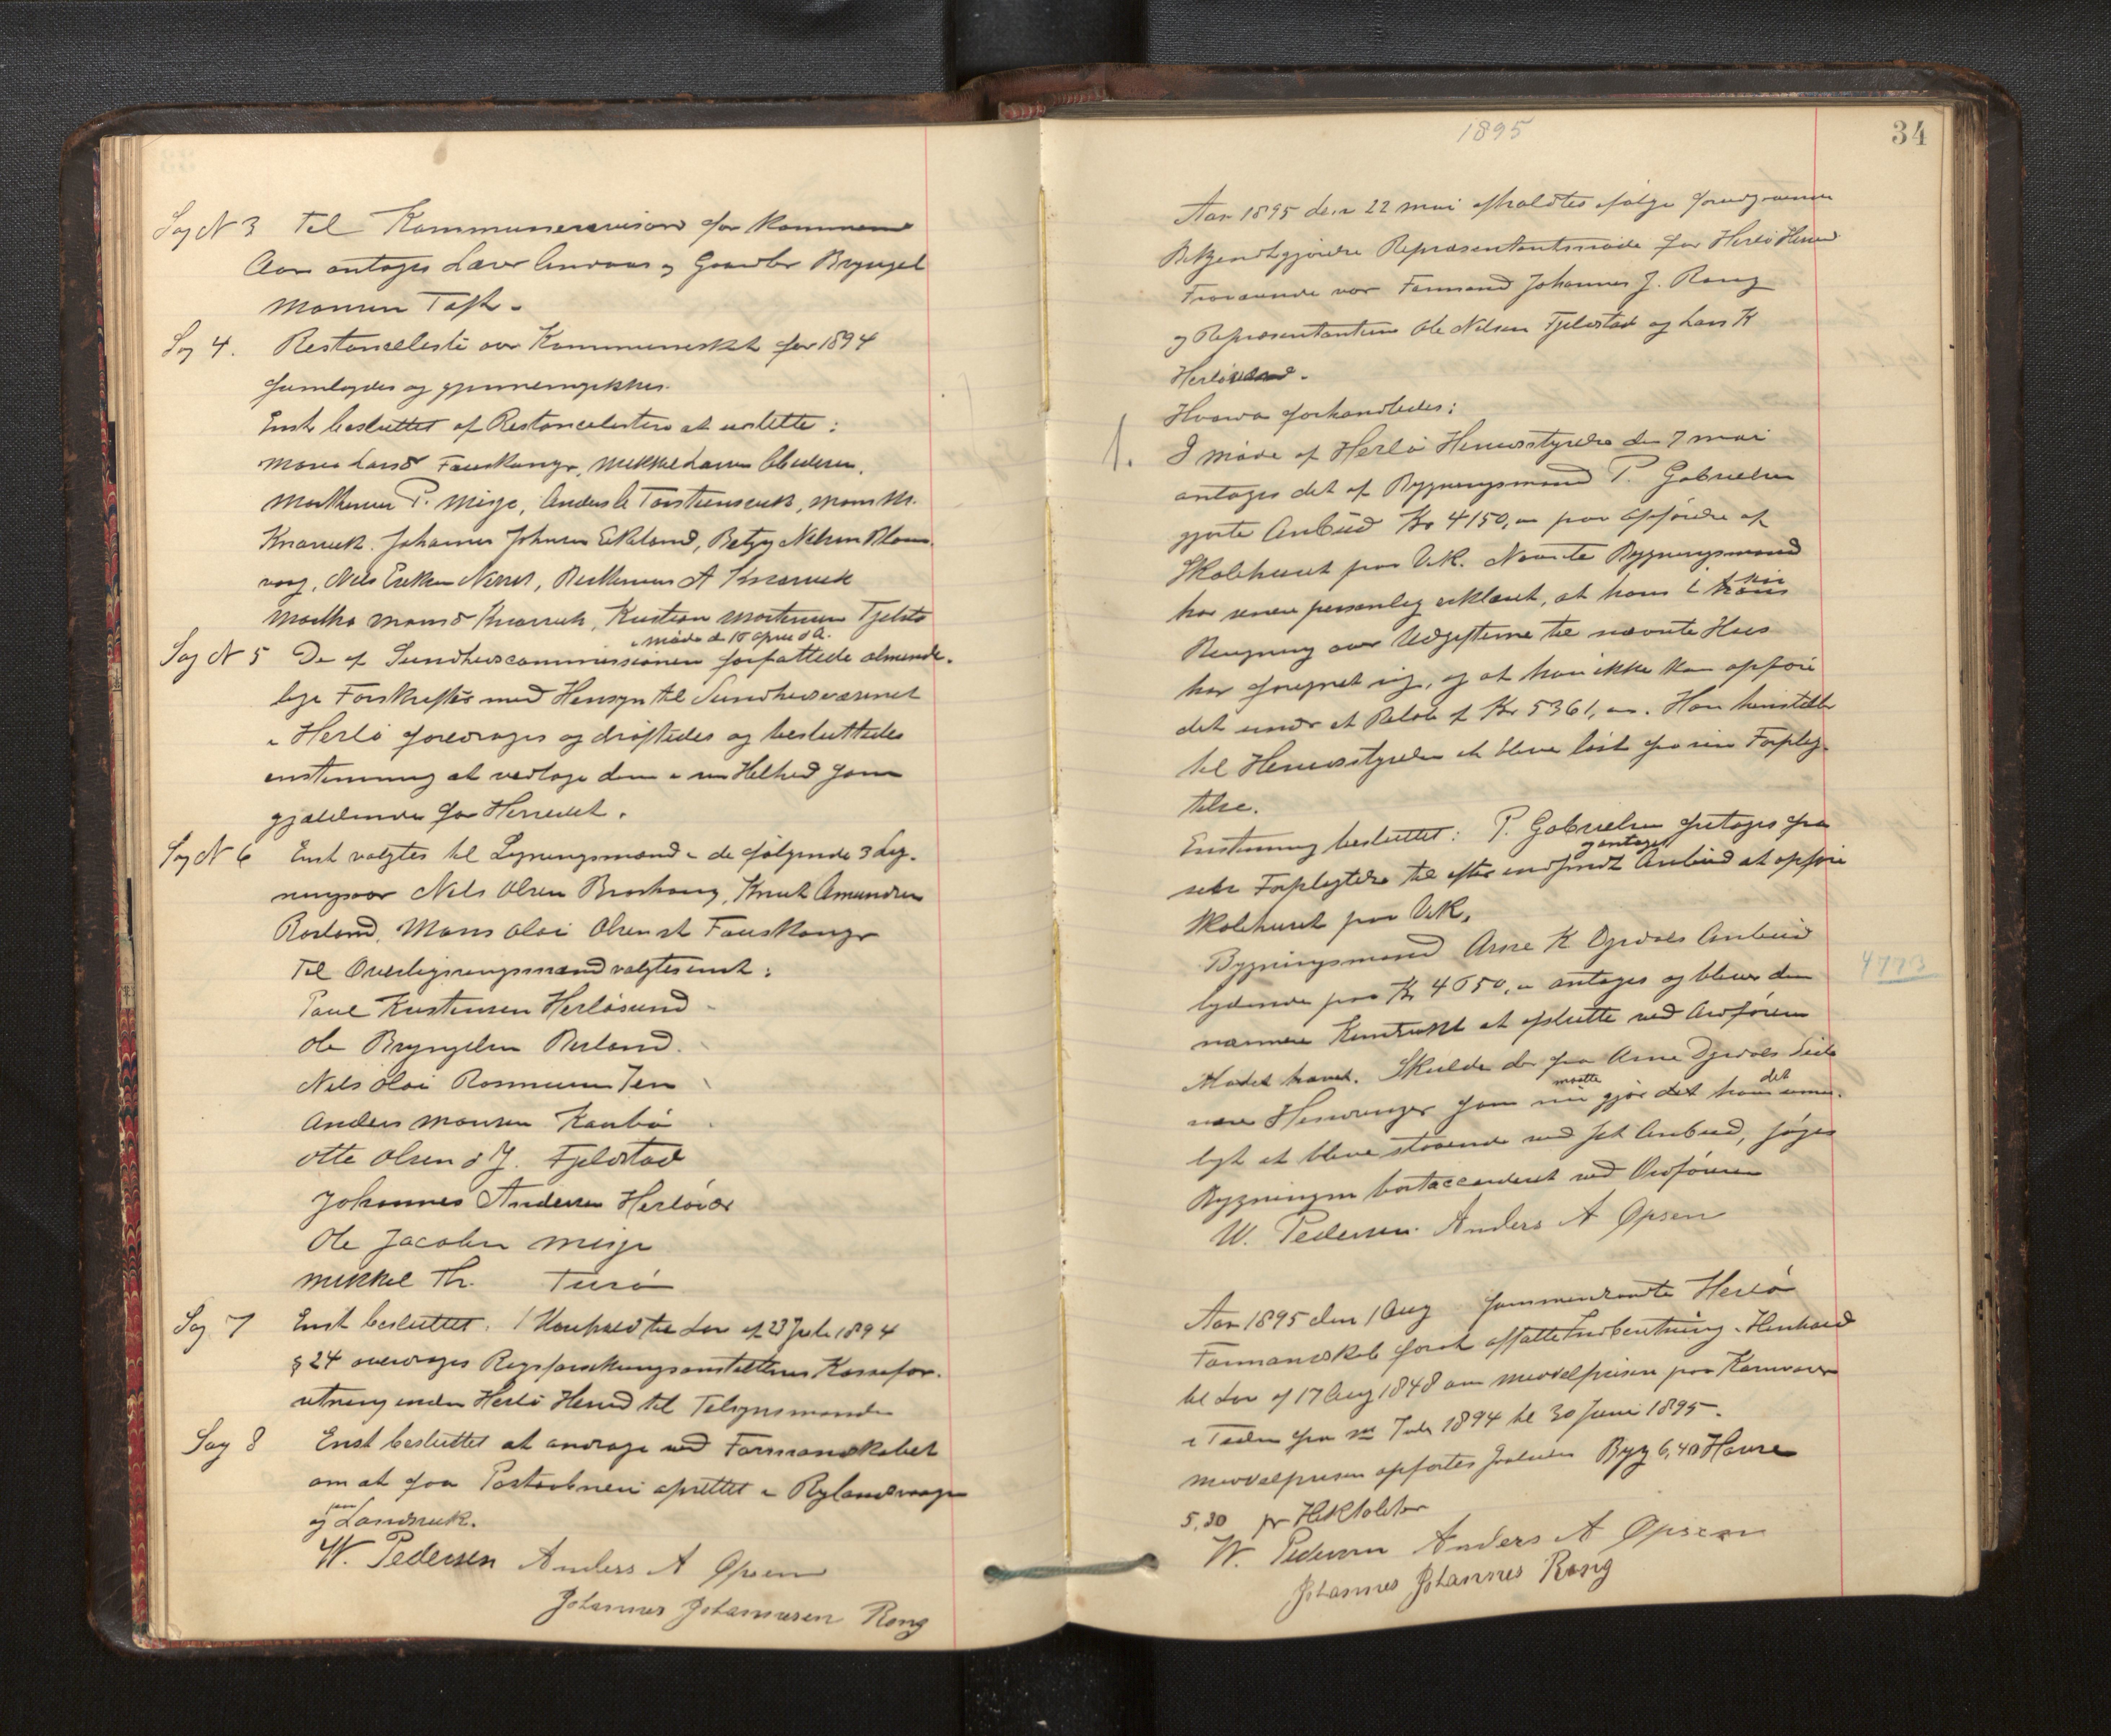 Sag N 3 Til Kommunerevisorer for kommende
Aar antages Lærer Amraas og Gaardbr Brynjel
Monsen Toft.
Sag 4. Restanceliste over Kommuneskat for 1894
fremlagdes og gjennemgikkes.
Enst. besluttet af Restancelisten at udslette:
Mons Lars8 Fauskanger, Mikkel Larsen
Mortinus P. Misje, Anders Torsteinsvik, Mons M.
Knarvik. Johannes Johnsen Eikeland, Betzy Nilsen Blom-
vaag, Nils Eriksen, Berthinus A Knarvik
Martha Mons8 Knarvik, Kristian Mortinusen Fjelsto
i møde d. 10 april d A.
Sag N 5 De af Sundhedscommissionen forfattede alminde-
lige Forskrifter med Hensyn til Sundhedsvæsenet
i Herlø foredroges og drøftedes og besluttedes
enstemmig at vedtage dem i sin Helhed som
gjældende for Herredet.
Sag N 6 Enst valgtes til Ligningsmænd i de følgende 3 Lig-
ningsaar Nils Olsen Breihaug, Knut Amundsen
Rosland, Mons Olai Olsen st Fauskanger
Til Overligningsmænd valgtes enst:
Paul Kristensen Herløsund
Ole Brynjelsen Berland.
Nils Olai Rasmussen
Anders Monsen Kaarbø
Otte Olsen d Y. Fjeldstad
Johannes Andersen Herløvær
Ole Jacobsen Misje
Mikkel Th. Turø
Sag 7 Enst besluttet. I Henhold til Lov af 23 Juli 1894
§ 24 overdrages Rigsforsikringsanstaltens Kassefor-
retning inden Herlø Herred til Tilsynsmanden
Sag 8 Enst besluttet at andrage ved Formandskabet
om at faa Postaabneri oprettet i Rylandsvaagen
paa
og Landsvik.
W. Pedersen Anders A Opsen
Johannes Johannesen Rong
1895
34
Aar 1895 den 22 mai afholdtes ifølge forudgaaende
Bekjendtgjørelse Repræsentantmøde for Herlø Herred
Fraværende var Formand Johannes J. Rong
og Repræsentanterne Ole Nilsen Fjeldstad og Lars K
Herløvær.
Hvorva forhandledes:
1. I møde af Herlø Herredsstyrelse den 7 mai
antages det af Bygningsmand P. Gabrielsen
gjorte Anbud Kr 4150,00 paa Opførelse af
Skolehuset paa Vik. Nævnte Bygningsmand
sin
har senere personlig erklæret, at han i hans
Beregning over Udgifterne til nævnte Hus
har forregnet sig, og at han ikke kan opføre
det under et Beløb af Kr 5361,00. Han henstiller
til Herredsstyrelsen at blive løst fra sin Forplig-
telse.
Enstemmig besluttet: P. Gabrielsen fritages fra
og antaget
sin Forpligtelse til efter indsendt Anbud at opføre
Skolehuset paa Vik.
Bygningsmand Arne K Djevoes Anbud
4773
lydende paa Kr 4650,00 antages og bliver den
nærmere Kontrakt at afslutte ved Ordføreren
Modet hævet. Skulde der fra Arne Djevoes Side
maatte det
være Hindringer som gjør det ham umu-
ligt at blive staaende ved sit Anbud, søges
Bygningen bortaccorderet ved Ordføreren
W. Pedersen. Anders A Opsen
Aar 1895 den 1 Aug sammentraadte Herlø
Formandskab forat affatte Indberetning i Henhold
til Lov af 17 Aug 1848 om Middelprisen paa Kornvarer
i Tiden fra 1ste Juli 1894 til 30 Juni 1895.
Middelprisen opførtes saaledes Byg 6,40 Havre
5,30 pr Hektoliter
W. Pedersen Anders A Opsen
Johannes Johannes Rong